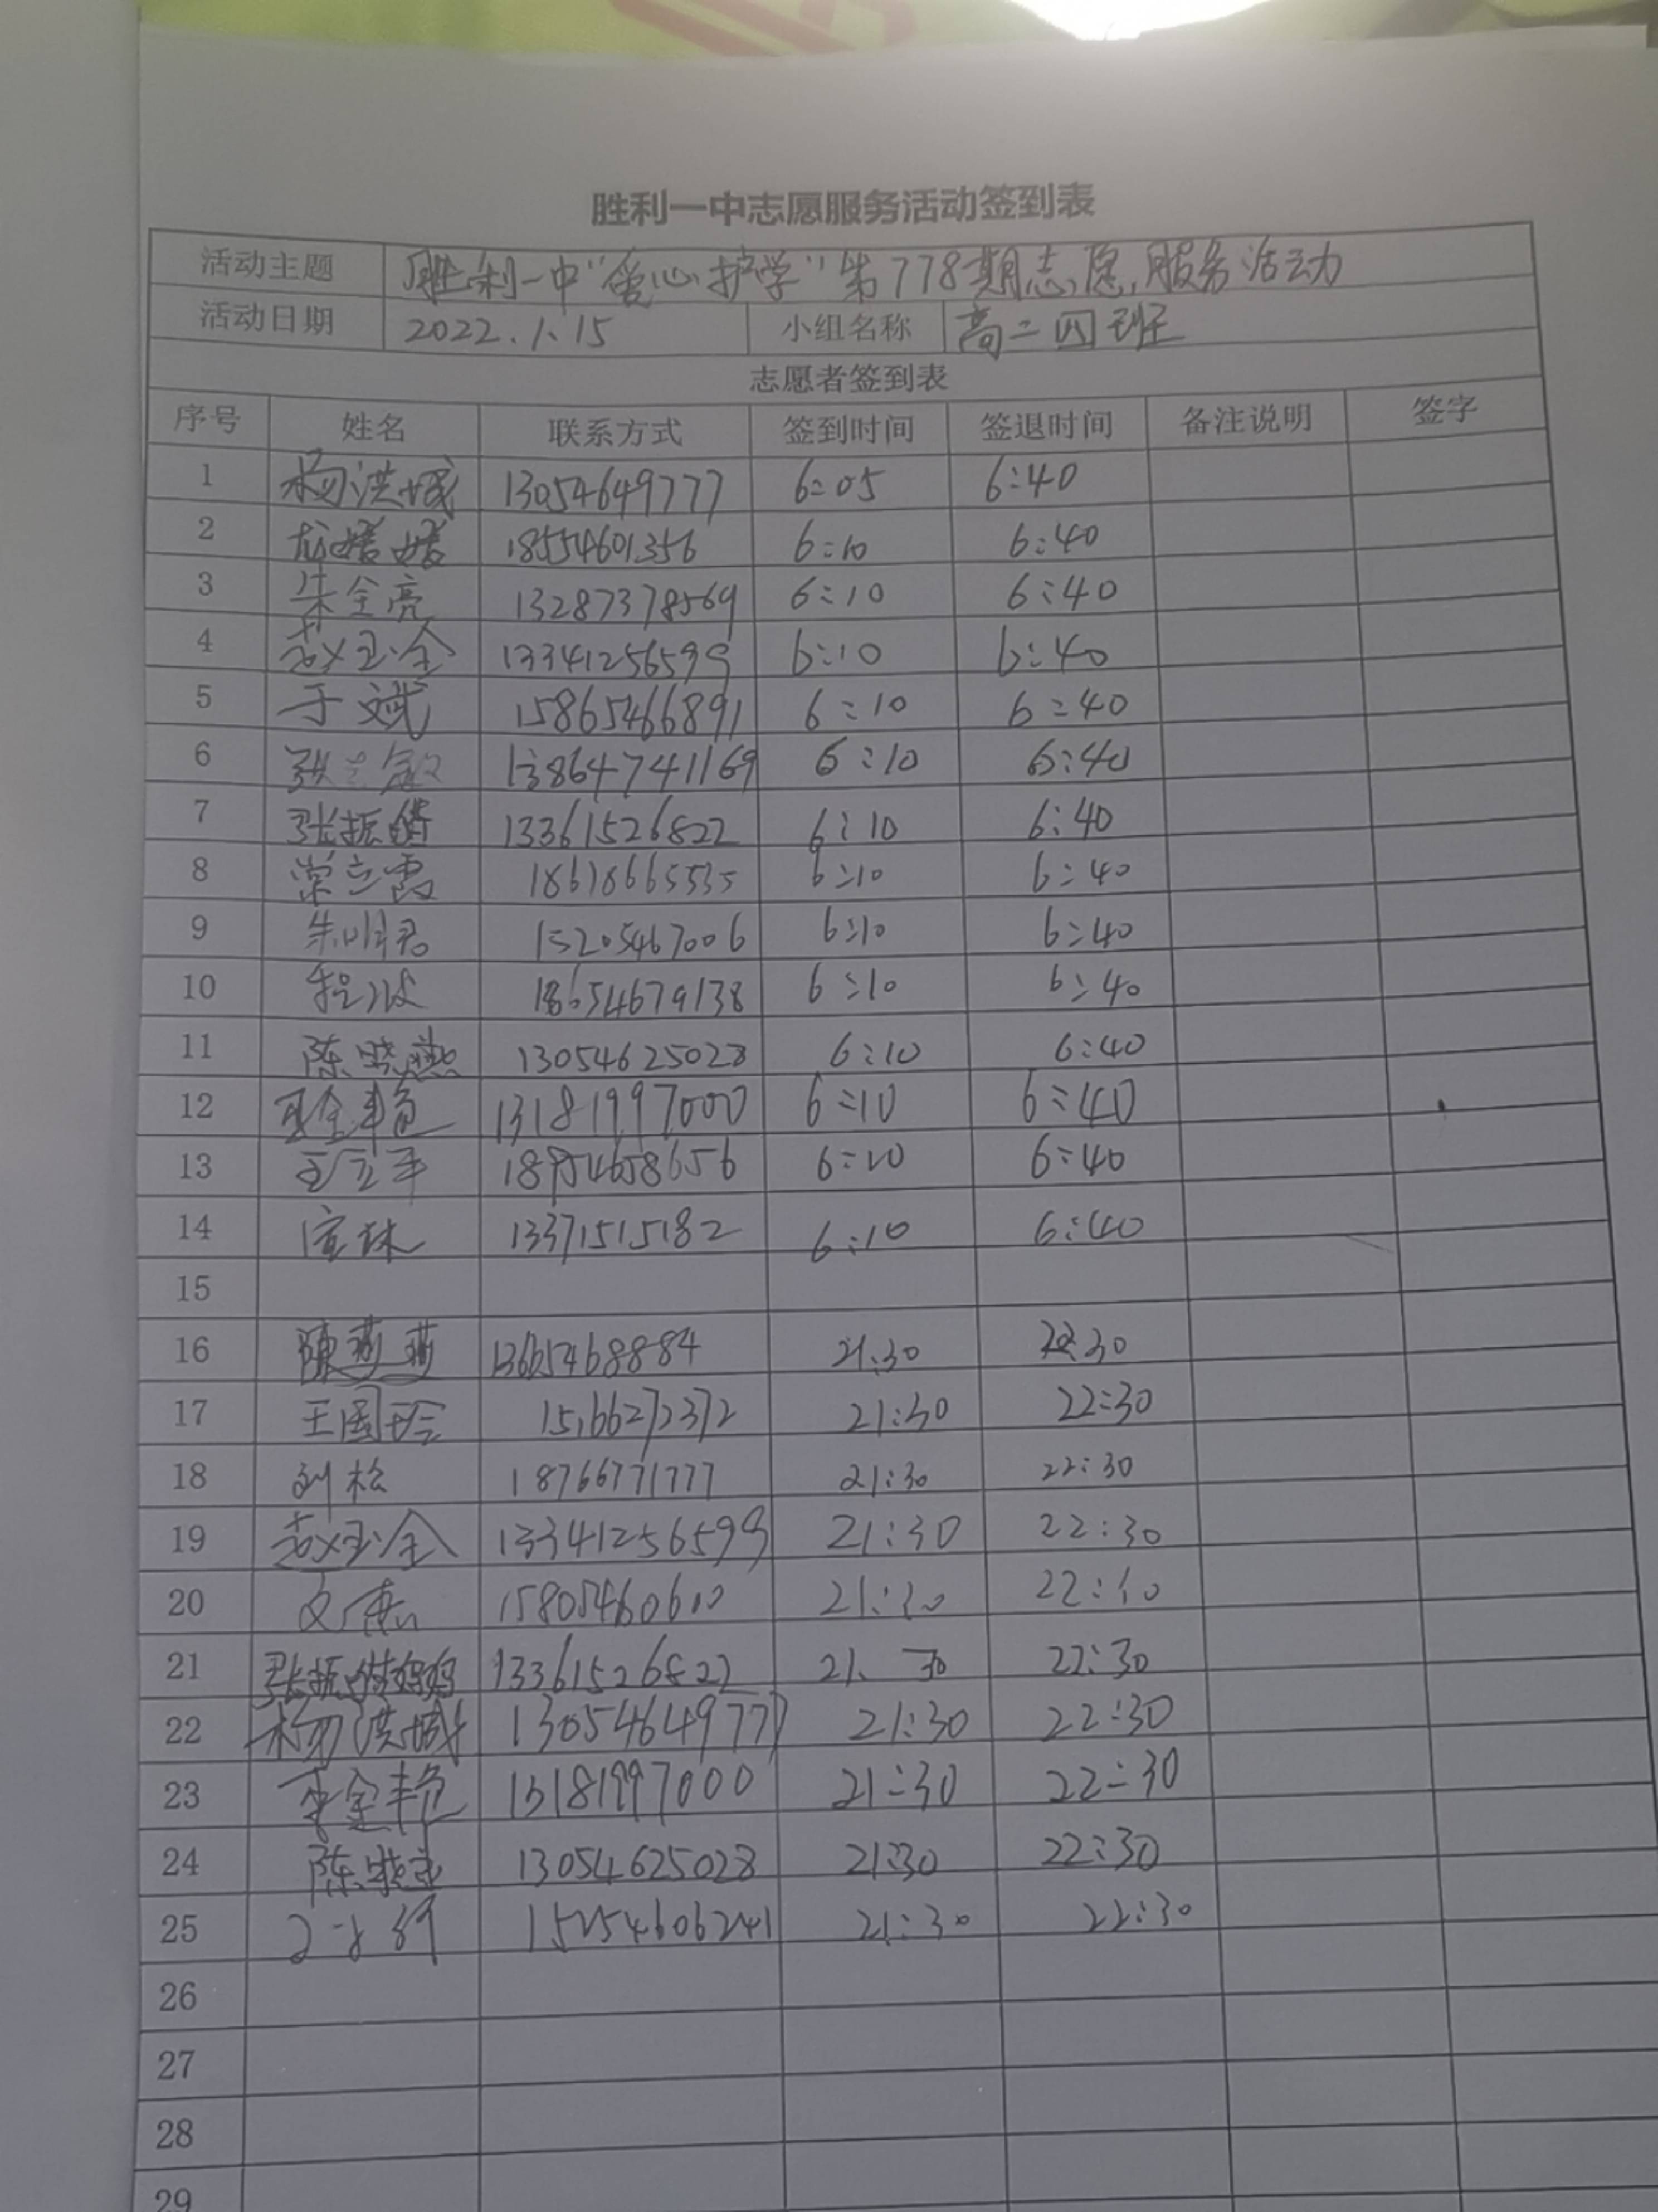 胜利一中志愿服务活动签到表
活动主题 胜利一中"爱心护学"第778期志愿服务活动
活动日期 2022.1.15 小组名称 高二四班
志愿者签到表
序号 姓名 联系方式 签到时间 签退时间 备注说明 签字
1 杨洪城 13054649777 6:05 6:40
2 媛媛 18554601356 6:10 6:40
3 朱全亮 13287378569 6:10 6:40
4 赵玉全 13341256599 6:10 6:40
5 于斌 15865466891 6:10 6:40
6 张 敏 13864741169 6:10 6:40
7 张振 13361526822 6:10 6:40
8 常立霞 18618665535 6:10 6:40
9 朱明君 15205467006 6:10 6:40
10 程波 18654679138 6:10 6:40
11 陈晓燕 13054625028 6:10 6:40
12 李金艳 13181997000 6:10 6:40
13 王立平 18954658656 6:10 6:40
14 13371515182 6:10 6:40
15
16 陳燕燕 13665468884 21:30 22:30
17 王国珍 15166272372 21:30 22:30
18 刘松 18766771777 21:30 22:30
19 赵玉全 13341256599 21:30 22:30
20 15805460610 21:30 22:30
21 张振 妈妈 13361526822 21:30 22:30
22 杨洪城 13054649777 21:30 22:30
23 李金艳 13181997000 21:30 22:30
24 陈晓燕 13054625028 21:30 22:30
25 15254606241 21:30 22:30
26
27
28
29